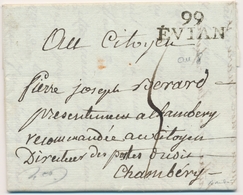 99
EVIAN
Au Citoyen
pierre joseph Berard
presentement a Chambery
recommandée au Citoyen
Directeur des postes dudit
Chambery